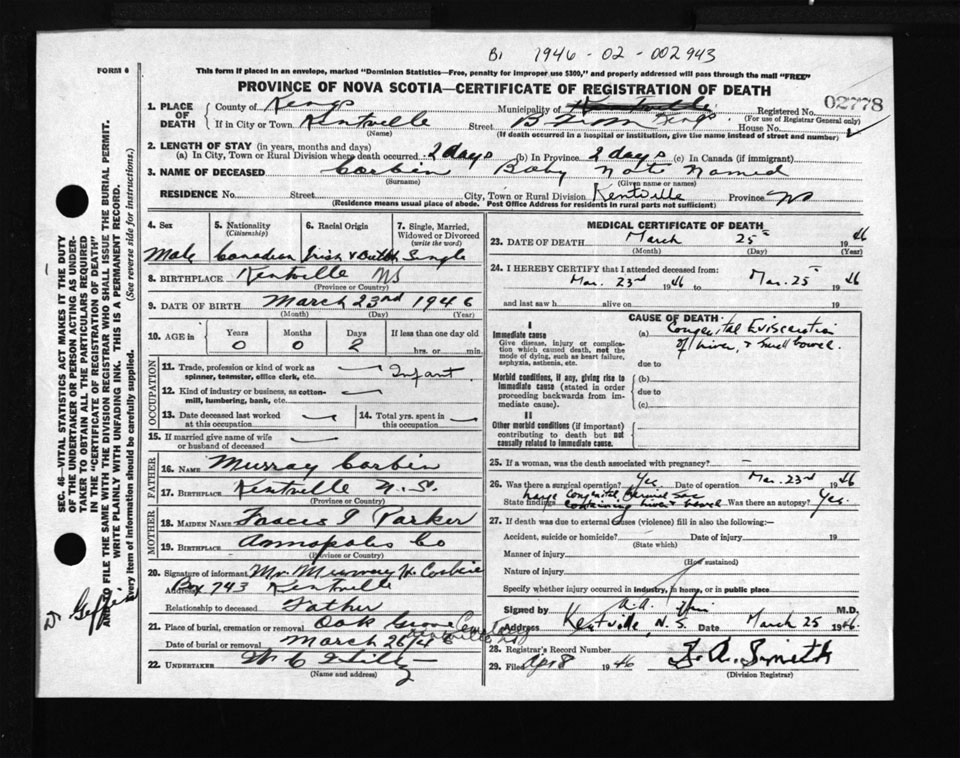 B1 1946-02-002943
FORM 6
This form if placed in an envelope, marked "Dominion Statistics—Free, penalty for improper use $300," and properly addressed will pass through the mail "FREE"
PROVINCE OF NOVA SCOTIA—CERTIFICATE OF REGISTRATION OF DEATH
02778
1. PLACE OF DEATH
County of Kings Municipality of Kentville Registered No.
(For use of Registrar General only)
If in City or Town Kentville Street House No.
(Name) (If death occurred in a hospital or institution, give the name instead of street and number)
2. LENGTH OF STAY (in years, months and days)
(a) In City, Town or Rural Division where death occurred 2 days (b) In Province 2 days (c) In Canada (if immigrant)
3. NAME OF DECEASED Corbin Baby Not Named
(Surname) (Given name or names)
RESIDENCE No. Street City, Town or Rural Division Kentville Province NS
(Residence means usual place of abode. Post Office Address for residents in rural parts not sufficient)
4. Sex
Male
5. Nationality
(Citizenship)
Canadian
6. Racial Origin
Irish &
7. Single, Married, Widowed or Divorced
(write the word)
Single
8. BIRTHPLACE Kentville NS
(Province or Country)
9. DATE OF BIRTH March 23rd 1946
(Month) (Day) (Year)
10. AGE in
Years Months Days If less than one day old
0 0 2 hrs. or min.
OCCUPATION
11. Trade, profession or kind of work as spinner, teamster, office clerk, etc. — Infant
12. Kind of industry or business, as cotton-mill, lumbering, bank, etc. —
13. Date deceased last worked at this occupation —
14. Total yrs. spent in this occupation —
15. If married give name of wife or husband of deceased —
FATHER
16. NAME Murray Corbin
17. BIRTHPLACE Kentville N.S.
(Province or Country)
MOTHER
18. MAIDEN NAME Parker
19. BIRTHPLACE Annapolis Co
(Province or Country)
20. Signature of informant Mr Murray H. Corbin
Address Box 743 Kentville
Relationship to deceased Father
21. Place of burial, cremation or removal Oak Grove Cemetery
Date of burial or removal March 26/46
22. UNDERTAKER W C
(Name and address)
MEDICAL CERTIFICATE OF DEATH
23. DATE OF DEATH March 25th 1946
(Month) (Day)
24. I HEREBY CERTIFY that I attended deceased from:
Mar. 23rd 1946 to Mar. 25th 1946
and last saw h alive on 19
CAUSE OF DEATH
I
Immediate cause
Give disease, injury or complication which caused death, not the mode of dying, such as heart failure, asphyxia, asthenia, etc.
(a) Congenital Evisceration
of liver, & small bowel.
due to
Morbid conditions, if any, giving rise to immediate cause (stated in order proceeding backwards from immediate cause).
(b)
due to
(c)
II
Other morbid conditions (if important) contributing to death but not causally related to immediate cause.
25. If a woman, was the death associated with pregnancy? —
26. Was there a surgical operation? Yes. Date of operation Mar. 23rd 1946
State findings Large Congenital Hernial Sac
containing liver & bowel Was there an autopsy? Yes.
27. If death was due to external causes (violence) fill in also the following:—
Accident, suicide or homicide? Date of injury 19
(State which)
Manner of injury
(How sustained)
Nature of injury
Specify whether injury occurred in industry, in home, or in public place
Signed by M.D.
Address Kentville, N.S. Date March 25 1946.
28. Registrar's Record Number
29. Filed Apr 8 1946
(Division Registrar)
SEC. 46—VITAL STATISTICS ACT MAKES IT THE DUTY OF THE UNDERTAKER OR PERSON ACTING AS UNDERTAKER TO OBTAIN ALL THE PARTICULARS REQUIRED IN THE "CERTIFICATE OF REGISTRATION OF DEATH" AND TO FILE THE SAME WITH THE DIVISION REGISTRAR WHO SHALL ISSUE THE BURIAL PERMIT. WRITE PLAINLY WITH UNFADING INK. THIS IS A PERMANENT RECORD.
Every item of information should be carefully supplied. (See reverse side for instructions.)